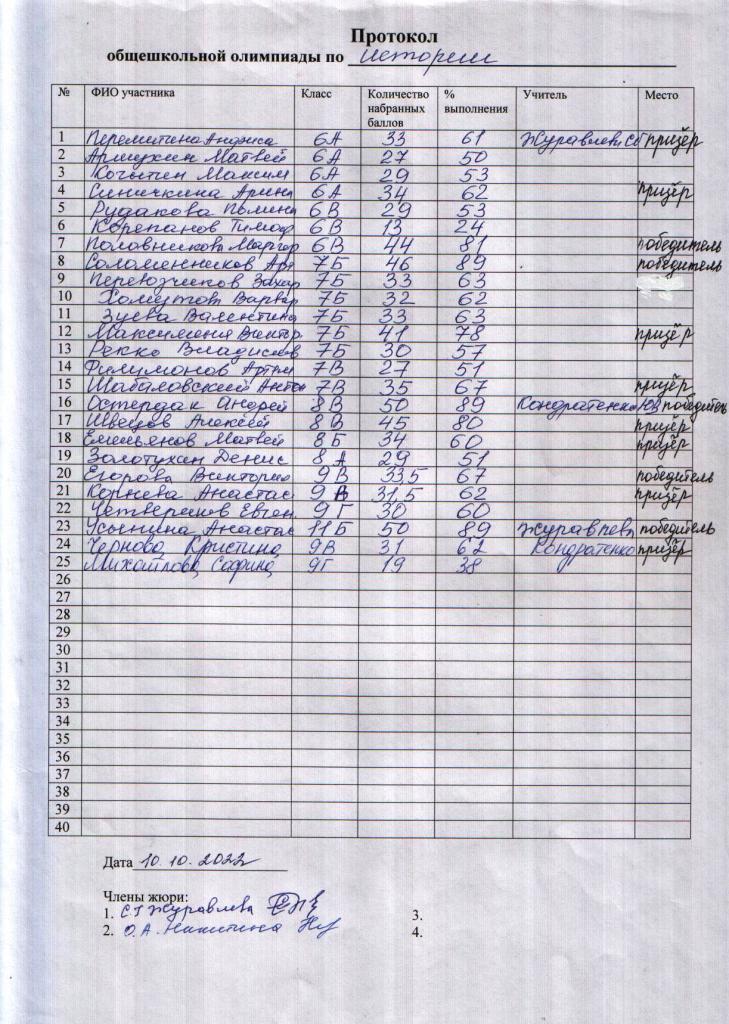 Протокол
общешкольной олимпиады по истории
№ ФИО участника Класс Количество набранных баллов % выполнения Учитель Место
1 Перемитина Анфиса 6А 33 61 Журавлева СГ призёр
2 Армухин Матвей 6А 27 50
3 Максим 6А 29 53
4 Синичкина Арина 6А 34 62 призёр
5 Рудакова Полина 6В 29 53
6 Корепанов Тимоф 6В 13 24
7 Половникова Маргар 6В 44 81 победитель
8 Соломенников Арт 7Б 46 89 победитель
9 Перевозчиков Захар 7Б 33 63
10 Хомутова Варвар 7Б 32 62
11 Зуева Валентина 7Б 33 63
12 Максименя Виктор 7Б 41 78 призёр
13 Рекко Владислав 7Б 30 57
14 Филимонов Артем 7В 27 51
15 Шабаловский Антон 7В 35 67 призёр
16 Остердак Андрей 8В 50 89 Кондратенко ЮВ победитель
17 Швецов Алексей 8В 45 80 призёр
18 Емельянов Матвей 8Б 34 60 призёр
19 Золотухин Денис 8А 29 51
20 Егорова Виктория 9В 33,5 67 победитель
21 Корнева Анастас 9В 31,5 62 призёр
22 Четвериков Евген 9Г 30 60
23 Усынина Анастас 11Б 50 89 Журавлева победитель
24 Чернова Кристина 9В 31 62 Кондратенко призёр
25 Михайлова Сафина 9Г 19 38
26
27
28
29
30
31
32
33
34
35
36
37
38
39
40
Дата 10.10.2022
Члены жюри:
1. С.Г Журавлева 3.
2. О.А. Никитина 4.